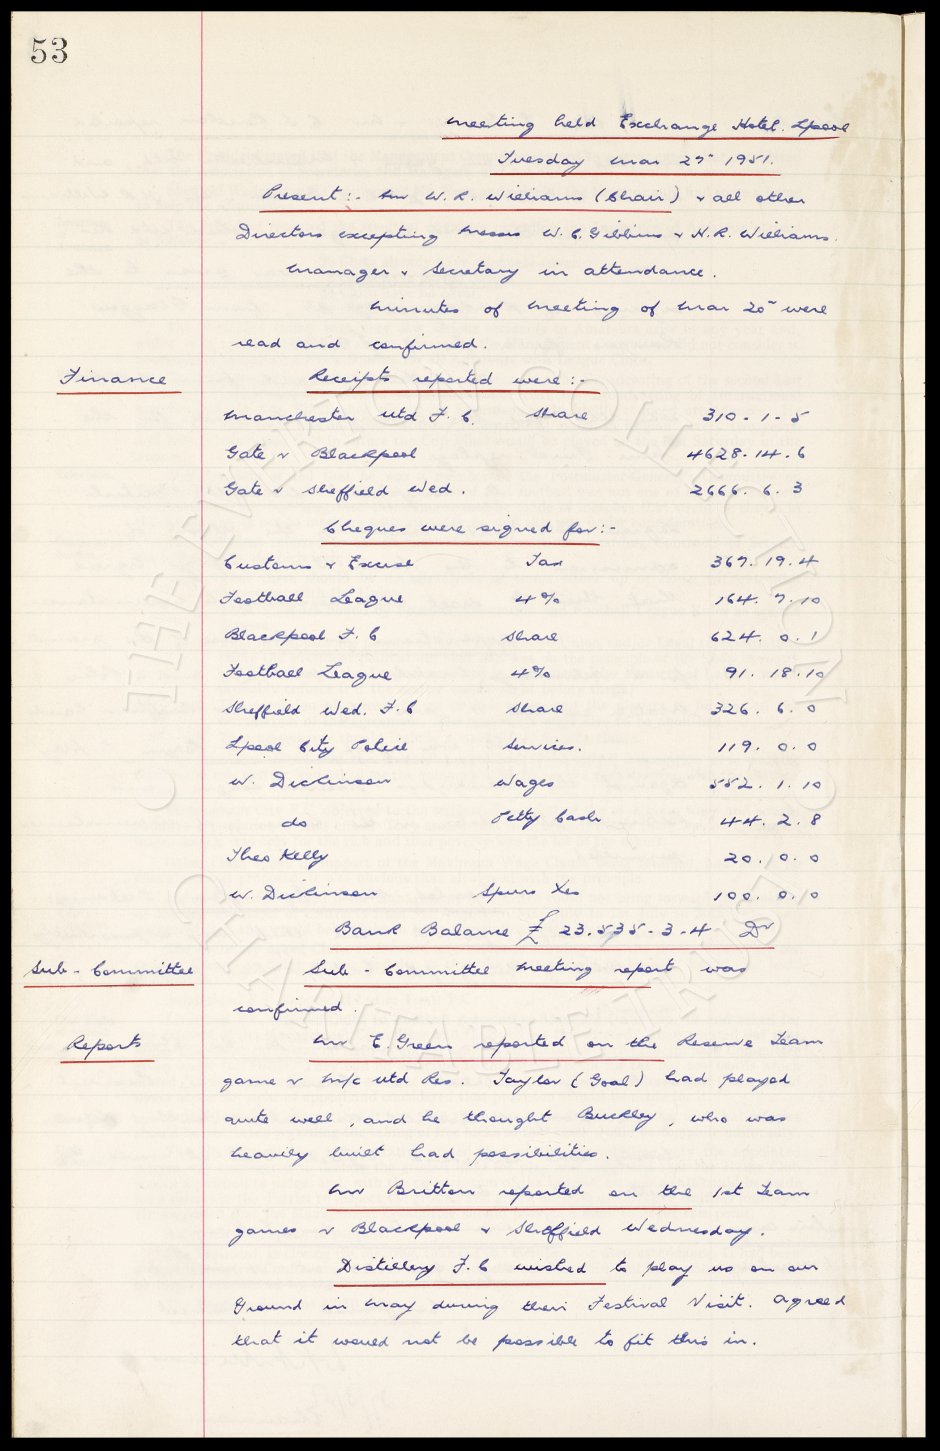 53
Meeting held Exchange Hotel. Lpool
Tuesday Mar 27" 1951.
Present:- Mr W. R. Williams (Chair) & all other
Directors excepting Messrs W. C. Gibbins & H. R. Williams.
Manager & Secretary in attendance.
Minutes of meeting of Mar 20" were
read and confirmed.
Finance
Receipts reported were:-
Manchester Utd F. C. Share 310 - 1 - 5
Gate v Blackpool 4628. 14. 6
Gate v Sheffield Wed. 2666. 6. 3
Cheques were signed for:-
Customs & Excise Tax 367. 19. 4
Football League 4% 164. 7. 10
Blackpool F. C Share 624. 0. 1
Football League 4% 91. 18. 10
Sheffield Wed. F. C Share 326. 6. 0
Lpool City Police Services. 119. 0. 0
W. Dickinson Wages 552. 1. 10
do Petty Cash 44. 2. 8
Theo Kelly 20. 0. 0
W. Dickinson Spurs Xes 100. 0. 0
Bank Balance £ 23.535 - 3 - 4 Dr
Sub - Committee
Sub - Committee meeting report was
confirmed.
Reports
Mr E. Green reported on the Reserve Team
game v M/c Utd Res. Taylor (Goal) had played
quite well, and he thought Buckley, who was
heavily built had possibilities.
Mr Britton reported on the 1st Team
games v Blackpool & Sheffield Wednesday.
Distillery F. C wished to play us on our
Ground in May during their Festival Visit. Agreed
that it would not be possible to fit this in.
© THE EVERTON COLLECTION
CHARITABLE TRUST